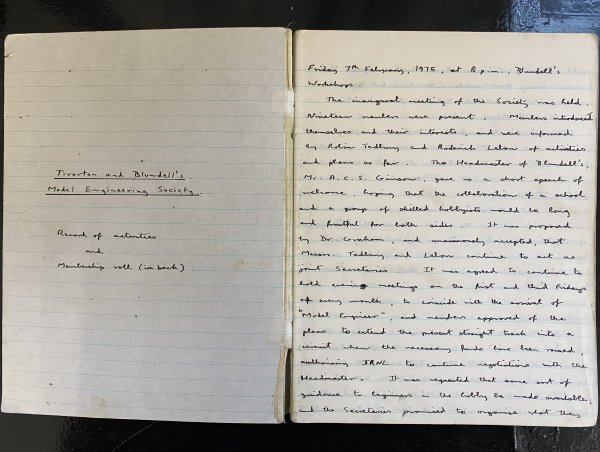 Tiverton and Blundell's
Model Engineering Society
Record of activities
and
Membership roll (in back)
Friday 7th February, 1975, at 8 p.m., Blundell's
Workshops
The inaugural meeting of the Society was held.
Nineteen members were present. Members introduced
themselves and their interests, and were informed
by Robin Tedbury and Roderick Lebon of activities
and plans so far. The Headmaster of Blundell's,
Mr. A.C.S. Gimson, gave us a short speech of
welcome, hoping that the collaboration of a school
and a group of skilled hobbyists would be long
and fruitful for both sides. It was proposed
by Dr. and unanimously accepted, that
Messrs. Tedbury and Lebon continue to act as
joint Secretaries. It was agreed to continue to
hold evening meetings on the first and third Fridays
of every month, to coincide with the arrival of
"Model Engineer", and members approved of the
plans to extend the present straight track into a
circuit when the necessary funds have been raised,
authorising JRNL to continue negotiations with the
Headmaster. It was requested that some sort of
guidance to beginners in the hobby be made available,
and the Secretaries promised to organise what they